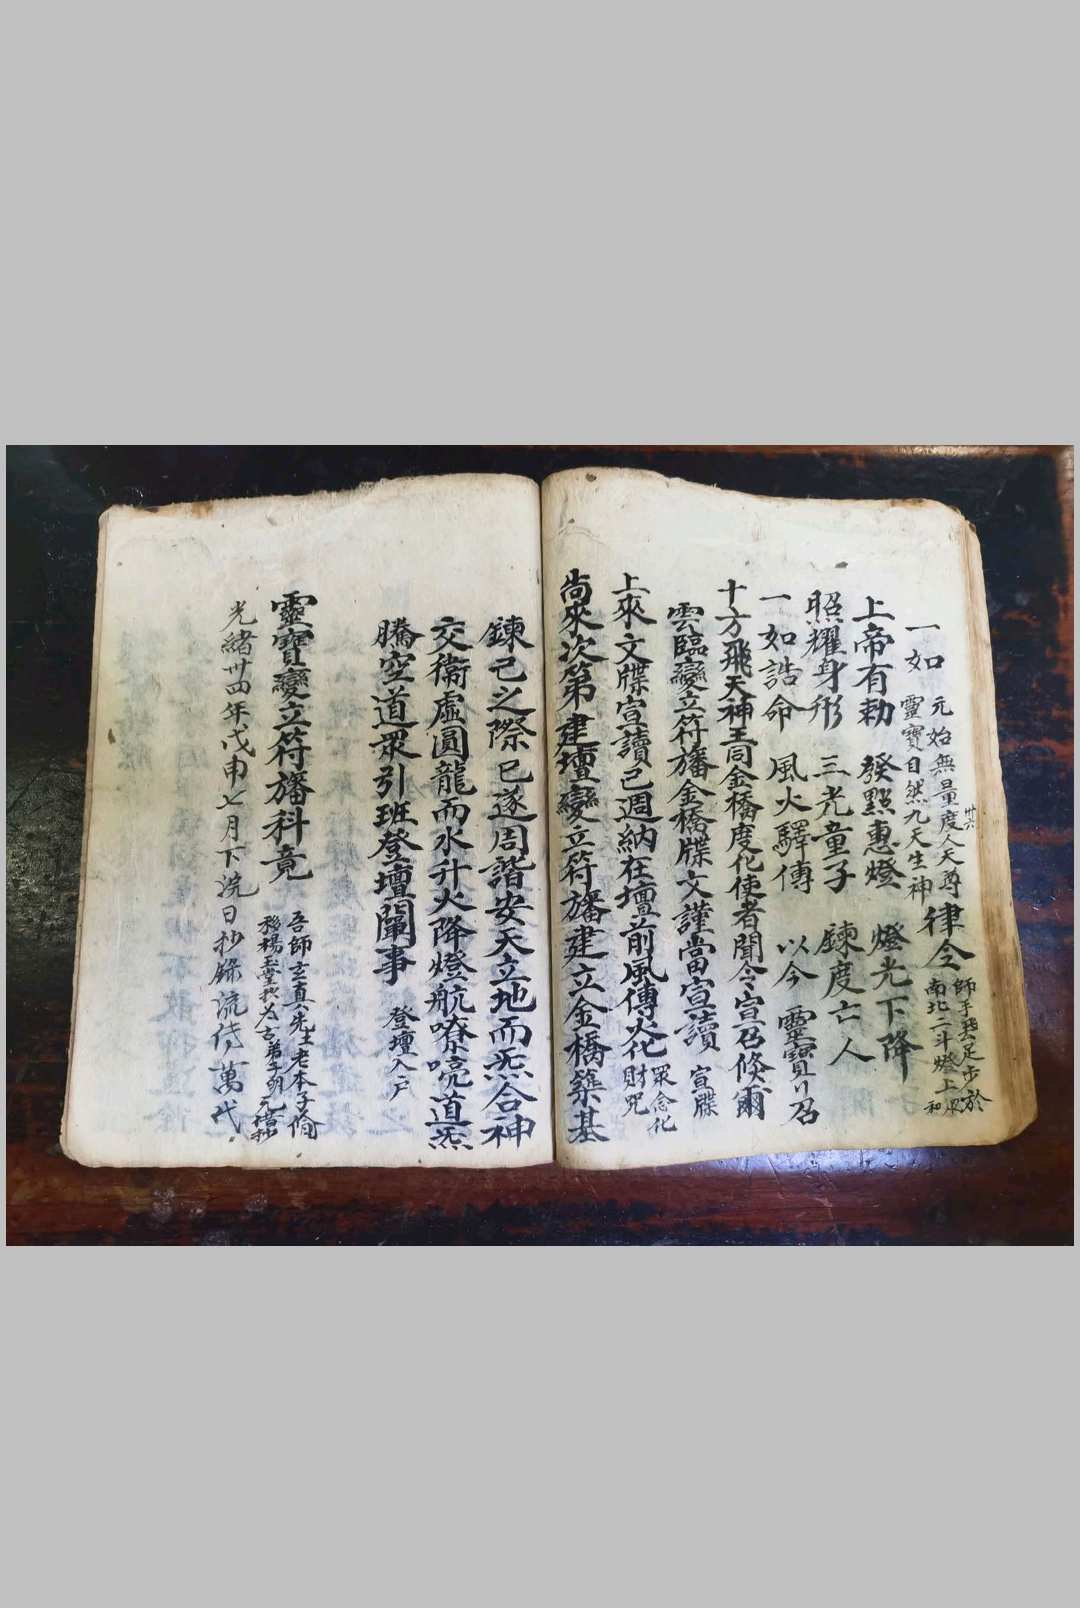 一如 元始無量度人天尊 靈寶自然九天生神 律令 師手 足步於 南北二斗燈上 和
卅六
上帝有勅 發點惠燈 燈光下降
照耀身形 三光童子 鍊度亡人
一如誥命 風火驛傳 以今 靈寶 召
十方飛天神王同金橋度化使者聞令宣召倏爾
雲臨變立符旛金橋牒文謹當宣讀 宣牒
上來文牒宣讀已週納在壇前風傳火化財 眾念化 咒
尚來次第建壇變立符旛建立金橋築基
鍊己之際已遂周諧安天立地而炁合神
交衛虛圓龍而水升火降燈航嘹喨道炁
騰空道眾引班登壇闡事 登壇入戶
靈寶變立符旛科竟
吾師玄真先生老本子
楊 弟子胡
光緒卅四年戊申七月下浣日抄錄流傳萬代